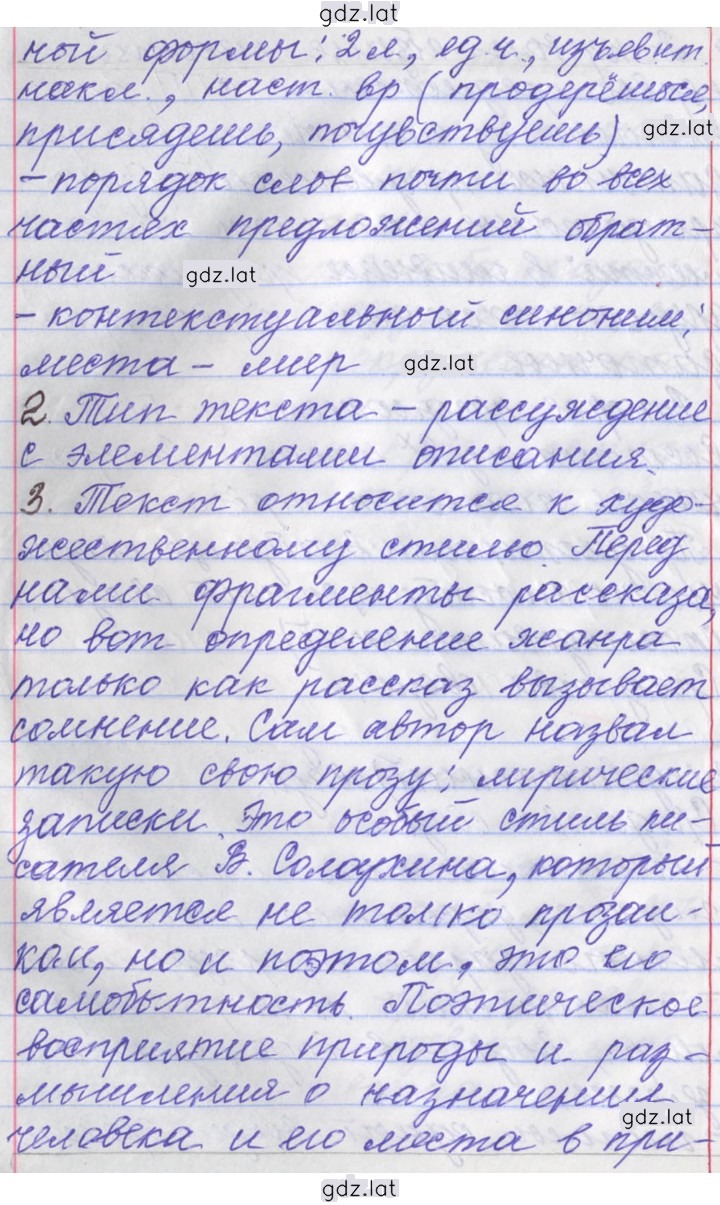 gdz.lat
ной формы: 2 л., ед.ч., изъявит.
накл., наст. вр (продерёшься,
присядешь, почувствуешь)
gdz.lat
- порядок слов почти во всех
частях предложений обрат-
ный
gdz.lat
- контекстуальный синоним:
места - мир
gdz.lat
2. Тип текста - рассуждение
с элементами описания.
3. Текст относится к худо-
жественному стилю. Перед
нами фрагменты рассказа,
но вот определение жанра
только как рассказ вызывает
сомнение. Сам автор назвал
такую свою прозу: лирические
записки. Это особый стиль пи-
сателя В. Солоухина, который
является не только прозаи-
ком, но и поэтом, это его
самобытность. Поэтическое
восприятие природы и раз-
мышления о назначении
gdz.lat
человека и его места в при-
gdz.lat